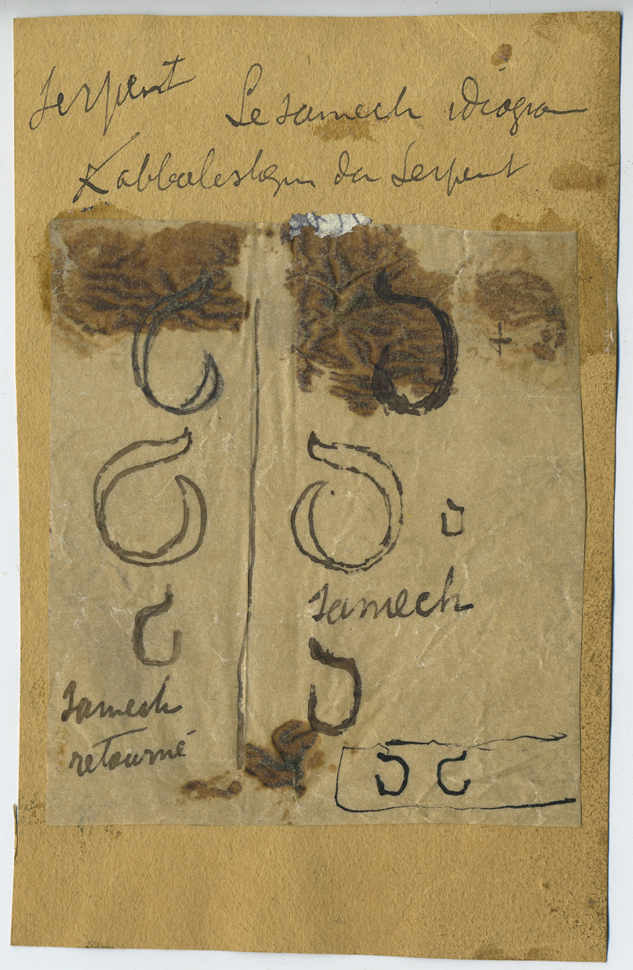 Serpent Le samech idéogra
Kabbalistique du Serpent
Samech
Samech
retourné